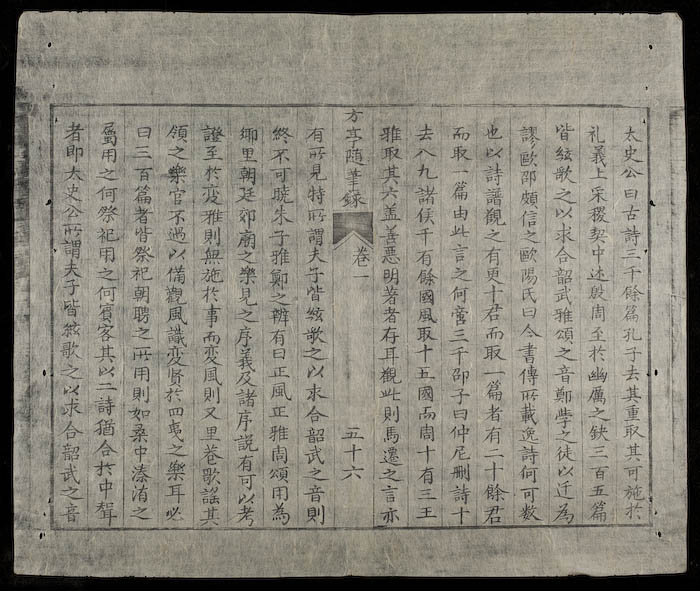 太史公曰古詩三千餘篇孔子去其重取其可施於
礼義上采稷契中述殷周至於幽厲之缺三百五篇
皆絃歌之以求合韶武雅頌之音鄭學之徒以迁為
謬歐邵頗信之歐陽氏曰今書傳所載逸詩何可数
也以詩譜觀之有更十君而取一篇者有二十餘君
而取一篇由此言之何啻三千邵子曰仲尼删詩十
去八九諸侯千有餘國風取十五國西周十有三王
雅取其六盖善悪明著者存耳觀此則馬遷之言亦
方亭隨筆録 卷一 五十六
有所見特所謂夫子皆絃歌之以求合韶武之音則
終不可曉朱子雅鄭之辨有曰正風正雅周頌用為
鄉里朝廷郊庙之樂見之序義及諸序説有可以考
證至於変雅則無施於事而变風則又里巷歌謡其
領之樂官不過以備觀風識変贤於四夷之樂耳必
曰三百篇者皆祭祀朝聘之所用則如桑中溱洧之
屬用之何祭祀用之何賓客其以二詩猶合於中聲
者即太史公所謂夫子皆絃歌之以求合韶武之音